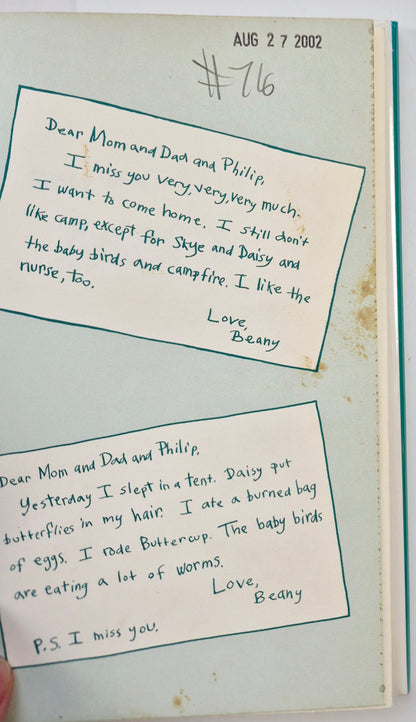 AUG 27 2002
#76
Dear Mom and Dad and Philip,
I miss you very, very, very much.
I want to come home. I still don't
like camp, except for Skye and Daisy and
the baby birds and campfire. I like the
nurse, too.
Love,
Beany
Dear Mom and Dad and Philip,
Yesterday I slept in a tent. Daisy put
butterflies in my hair. I ate a burned bag
of eggs. I rode Buttercup. The baby birds
are eating a lot of worms.
Love,
Beany
P.S. I miss you.